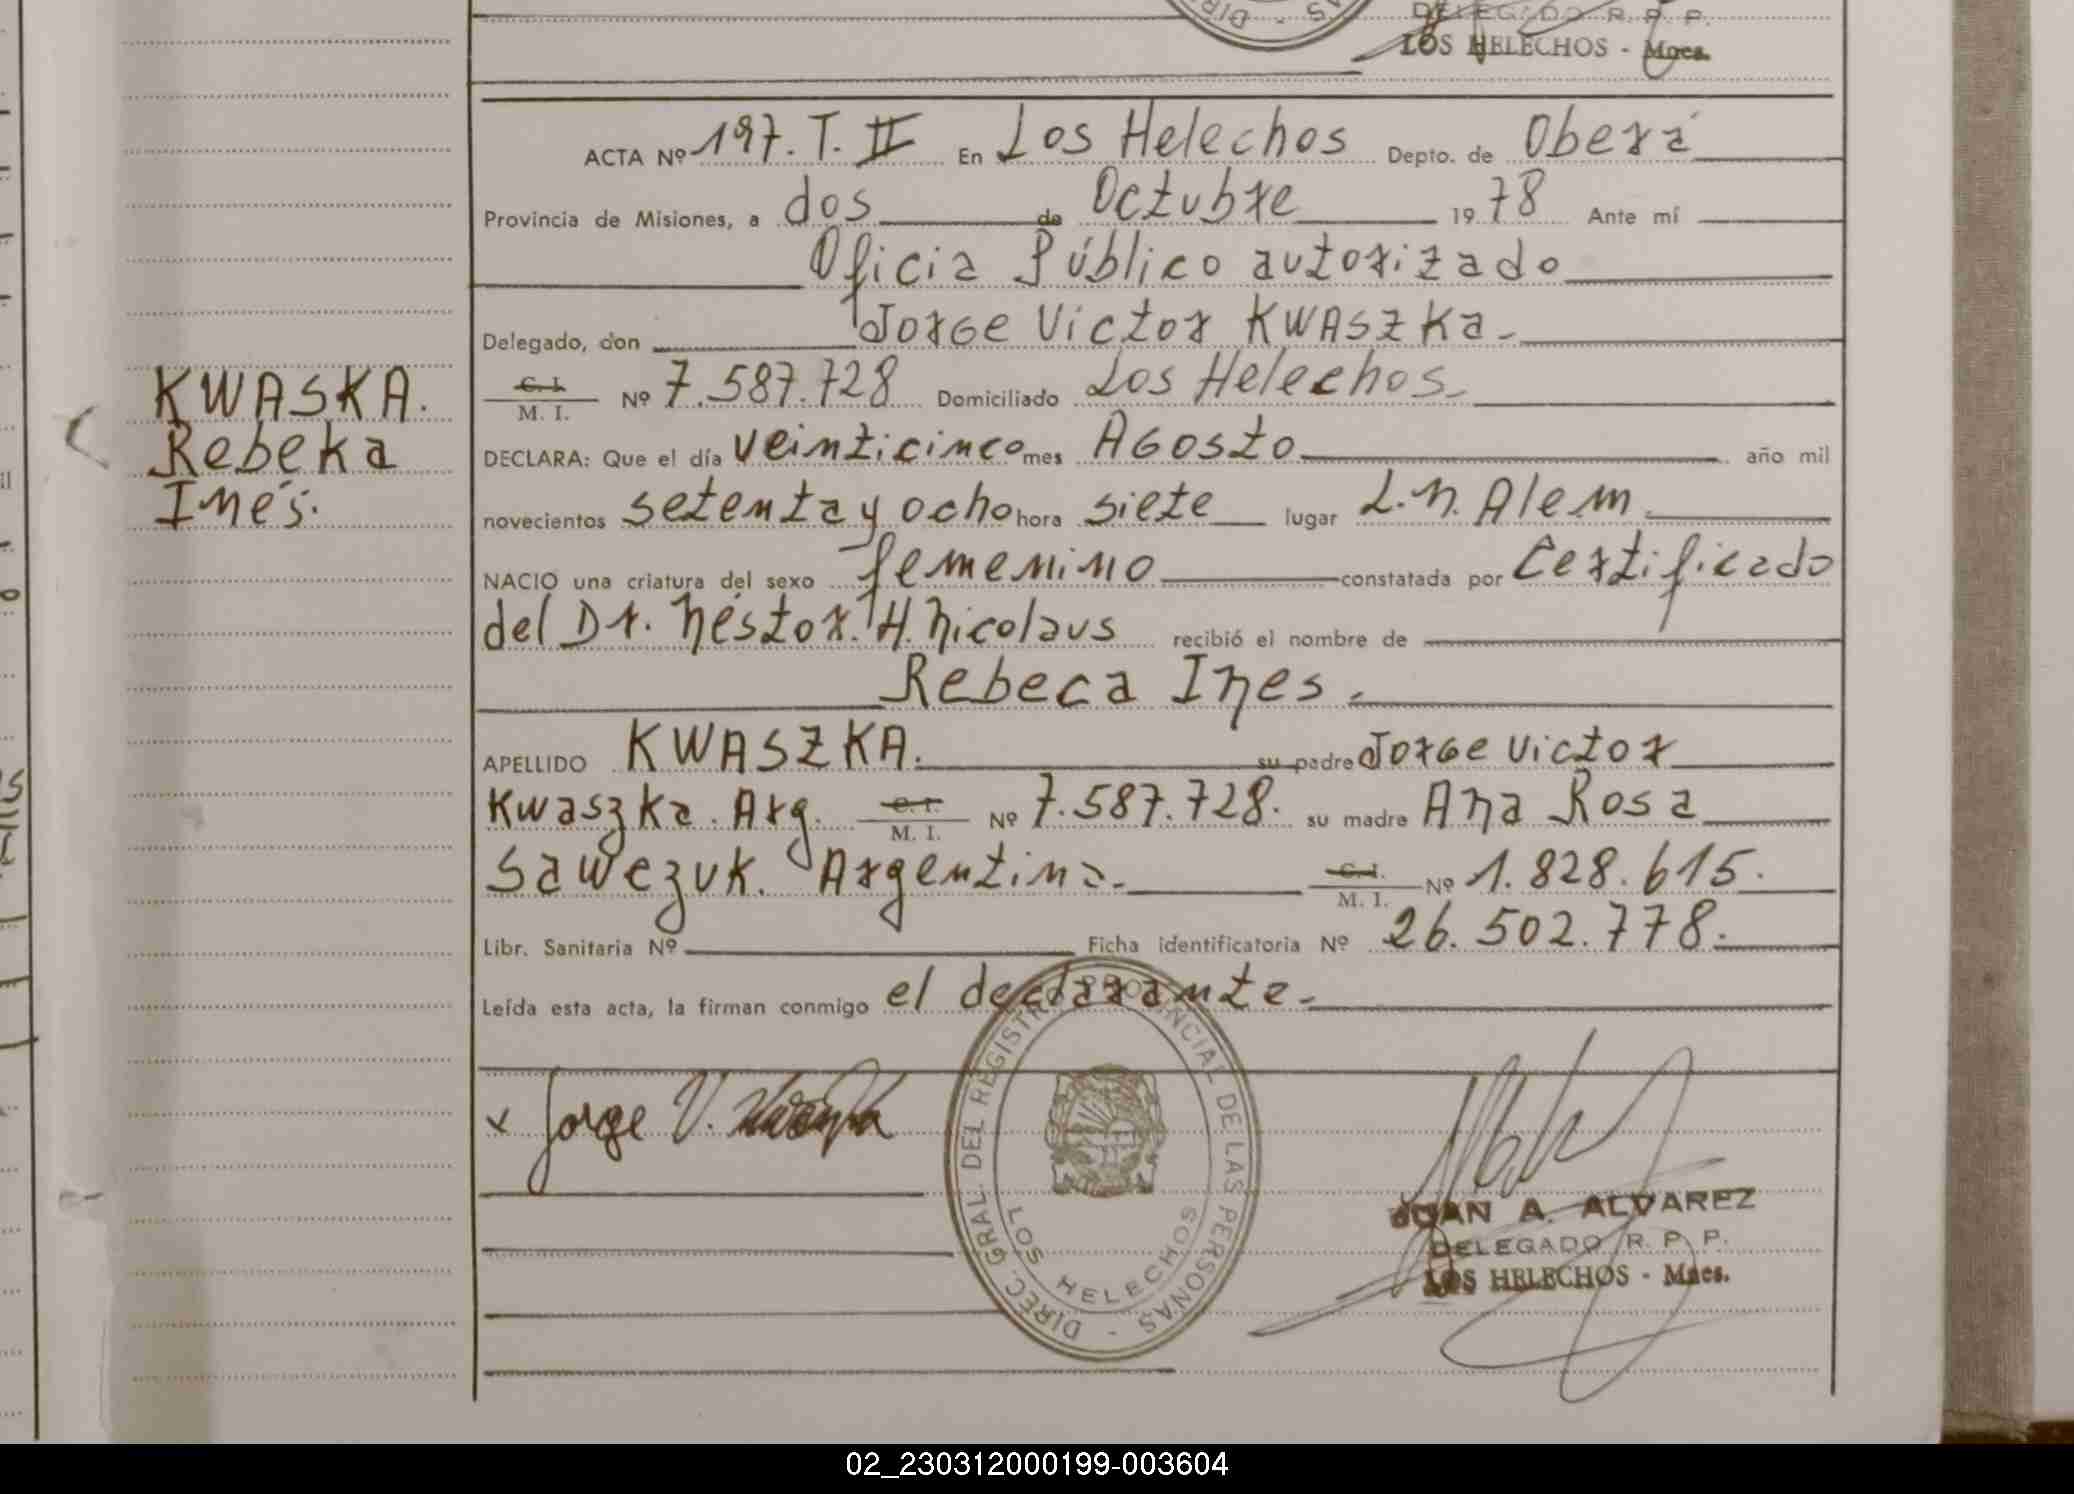 DELEGADO R. P. P.
LOS HELECHOS - Mnes.
ACTA Nº 197. T. II En Los Helechos Depto. de Oberá
Provincia de Misiones, a dos de Octubre 1978 Ante mí
Oficia Público autorizado
Delegado, don Jorge Victor KWASZKa.
C. I. M. I. Nº 7.587.728 Domiciliado Los Helechos.
DECLARA: Que el día veinticinco mes Agosto año mil
novecientos setenta y ocho hora siete lugar L.N. Alem.
NACIO una criatura del sexo femenino constatada por Certificado
del Dr. Néstor. H. Nicolaus recibió el nombre de
Rebeca Ines.
APELLIDO KWASZKA. su padre Jorge Victor
Kwaszka. Arg. C. I. M. I. Nº 7.587.728. su madre Ana Rosa
Sawczuk. Argentina. C. I. M. I. Nº 1.828.615.
Libr. Sanitaria Nº Ficha identificatoria Nº 26.502.778.
Leída esta acta, la firman conmigo el declarante.
KWASKA.
Rebeka
Inés.
x Jorge V. Kwaszka
DIREC. GRAL. DEL REGISTRO PROVINCIAL DE LAS PERSONAS -
LOS HELECHOS
JUAN A. ALVAREZ
DELEGADO R. P. P.
LOS HELECHOS - Mnes.
02_230312000199-003604